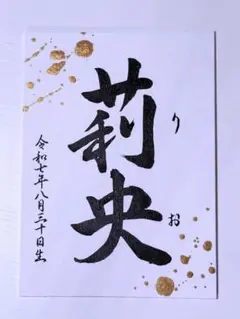 莉央
りお
令和七年八月三十日生